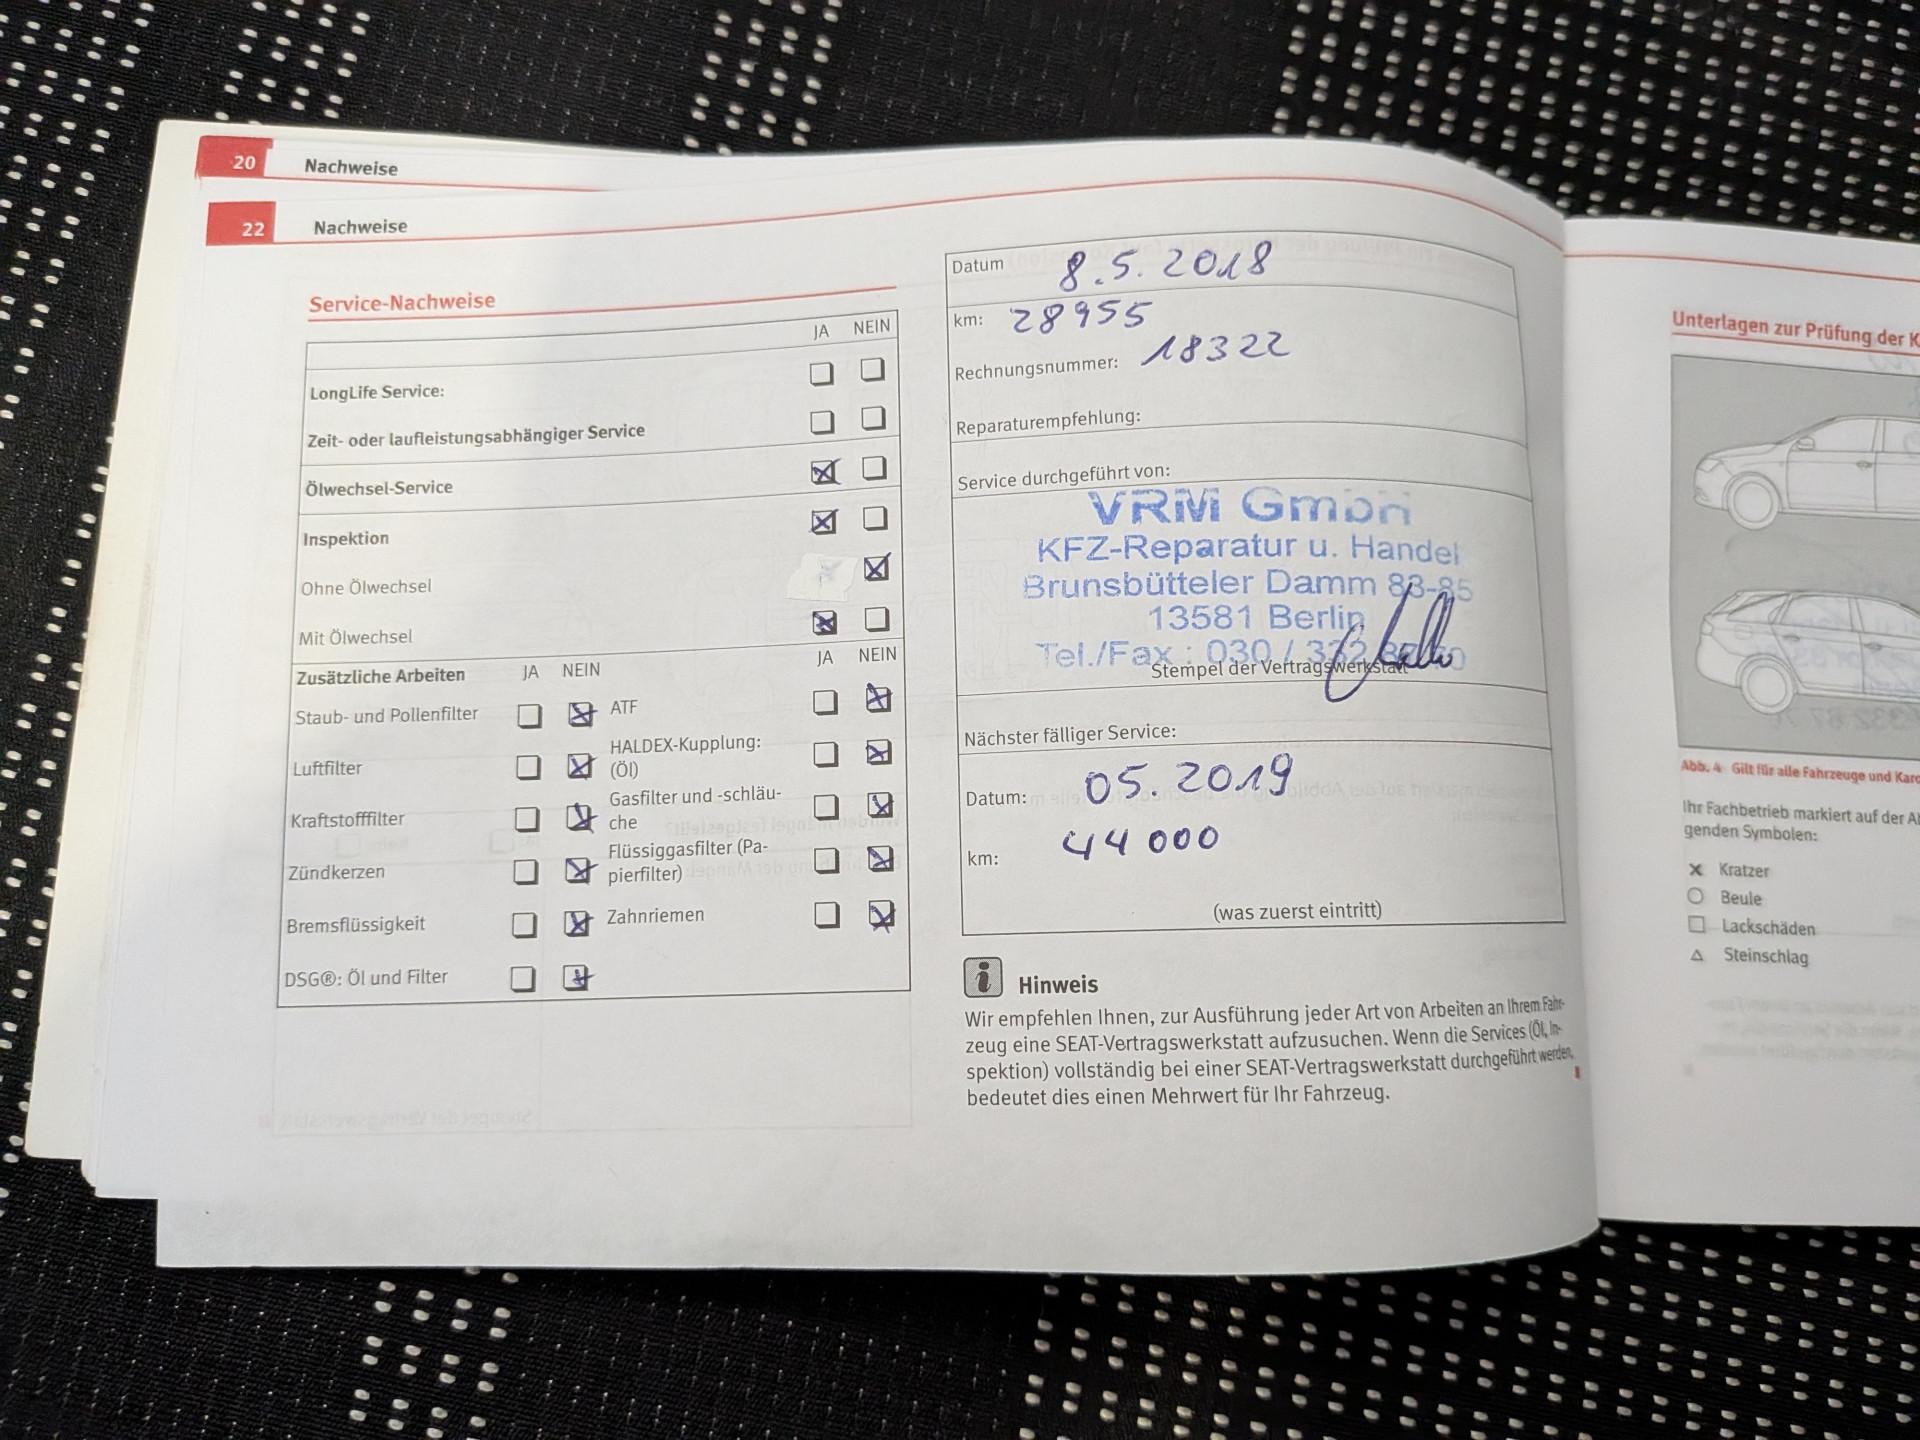 20 Nachweise
22 Nachweise
Service-Nachweise
JA NEIN
LongLife Service:
Zeit- oder laufleistungsabhängiger Service
Ölwechsel-Service
Inspektion
Ohne Ölwechsel
Mit Ölwechsel
Zusätzliche Arbeiten JA NEIN JA NEIN
Staub- und Pollenfilter ATF
Luftfilter HALDEX-Kupplung:
(Öl)
Kraftstofffilter Gasfilter und -schläu-
che
Zündkerzen Flüssiggasfilter (Pa-
pierfilter)
Bremsflüssigkeit Zahnriemen
DSG®: Öl und Filter
Datum 8.5.2018
km: 28955
Rechnungsnummer: 18322
Reparaturempfehlung:
Service durchgeführt von:
VRM GmbH
KFZ-Reparatur u. Handel
Brunsbütteler Damm 83-85
13581 Berlin
Tel./Fax : 030 / 332
Stempel der Vertragswerkstatt
Nächster fälliger Service:
Datum: 05.2019
km: 44 000
(was zuerst eintritt)
Hinweis
Wir empfehlen Ihnen, zur Ausführung jeder Art von Arbeiten an Ihrem Fahr-
zeug eine SEAT-Vertragswerkstatt aufzusuchen. Wenn die Services (Öl, In-
spektion) vollständig bei einer SEAT-Vertragswerkstatt durchgeführt werden,
bedeutet dies einen Mehrwert für Ihr Fahrzeug.
Unterlagen zur Prüfung der K
Abb. 4 Gilt für alle Fahrzeuge und Karo
Ihr Fachbetrieb markiert auf der Ab
genden Symbolen:
Kratzer
Beule
Lackschäden
Steinschlag